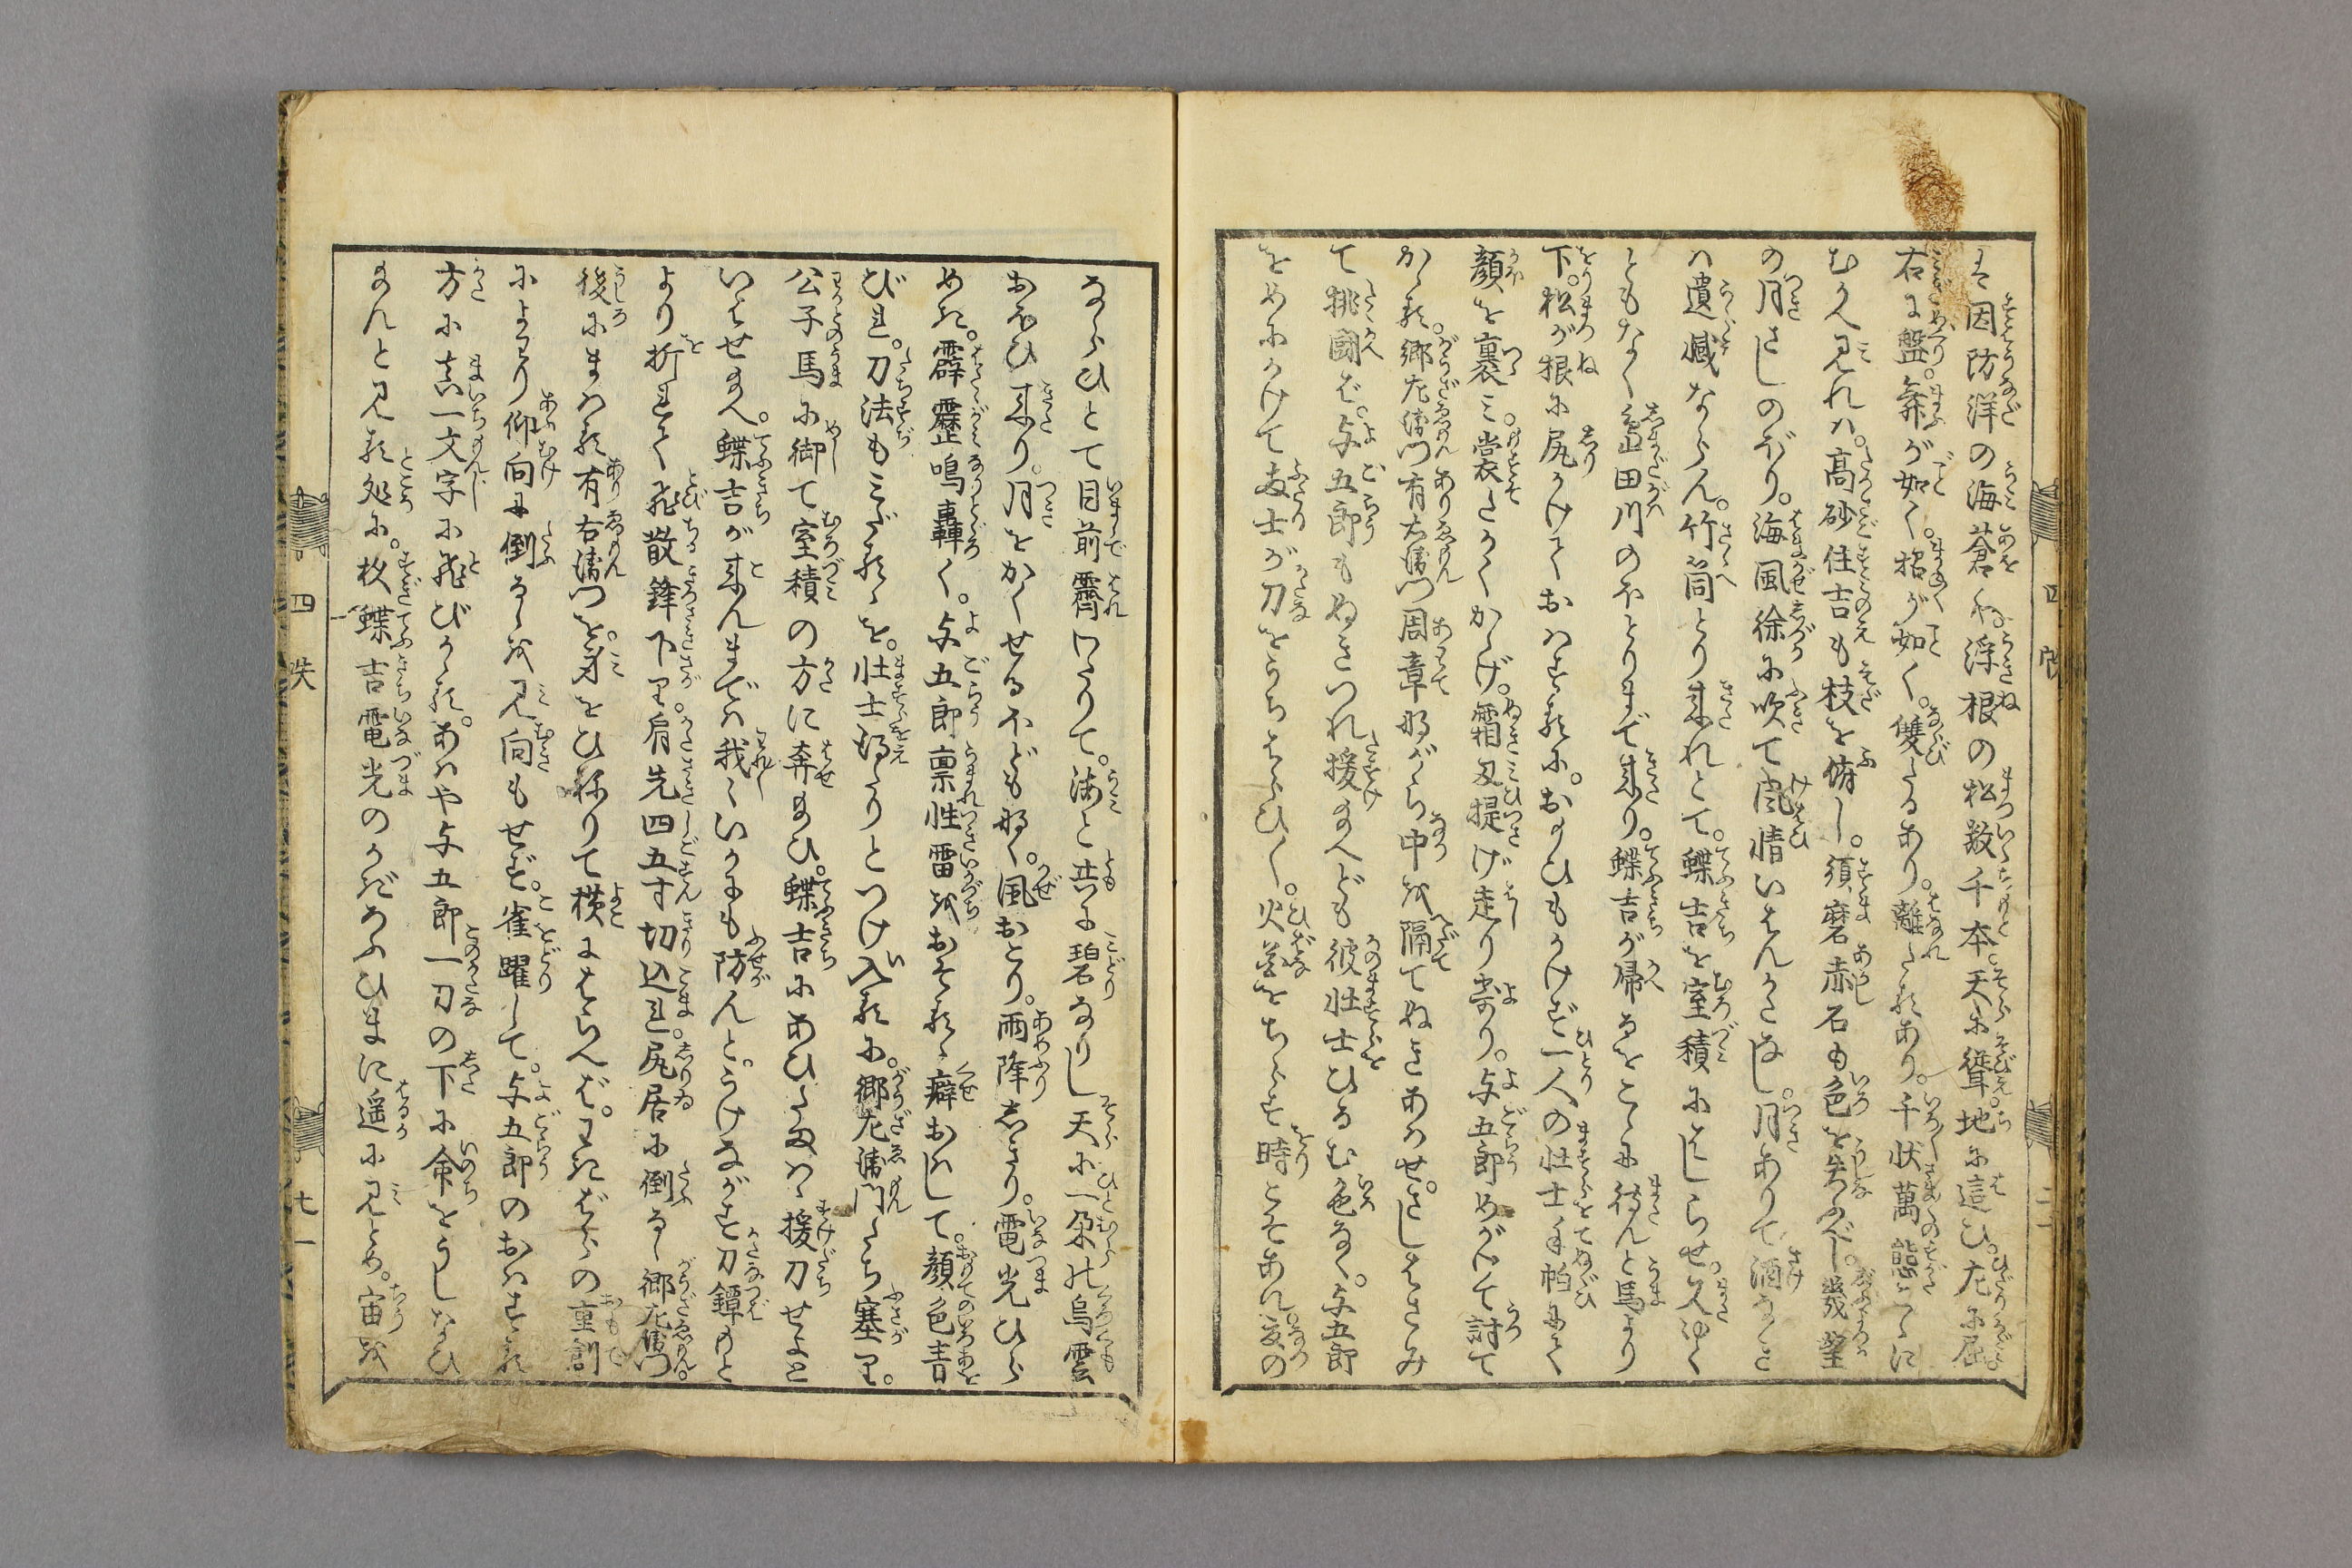 は因防洋の海蒼く浮根の松数千本天に聳地に這ひ。左に屈
右に盤。舞が如く。招が如く。雙たるあり。離たるあり。千状萬態こゝに
むかへ見れハ。高砂住吉も枝を脩し。須磨赤石も色を失ふべし。幾望
の月さしのぼり。海風徐に吹て風情いはんかたなし。月ありて酒なき
ハ遺憾ならん。竹筒とり来れとて。蝶吉を室積にはしらせ。久しく
ともなく嶋田川のほとりまで来り。蝶吉が帰るをこゝに待んと馬より
下。松が根に尻かけておはするに。おもひもかけず一人の壮士手帕にて
顔を裹ミ。裳たかくかゝげ。霜刃提げ走り寄り。与五郎めがけて討て
かゝる。郷左衛門有右衛門周章ながら中を隔てぬきあはせ。さしはさみ
て挑闘ば。与五郎もぬきつれ援給へども彼壮士ひるむ色なく。与五郎
をめにかけて両士が刀をうちはらひ〳〵。火花をちらす時こそあれ。夏の
ならひとて目前霽わたりて。海と共に碧なりし天に一朶の烏雲
おほひ来り。月をかくせるほども なく。風おこり。雨降しきり。電光ひら
めき。霹靂鳴轟く。与五郎禀性雷をおそるゝ癖おはして。顔色青
びれ。刀法もミだるゝを。壮士得たりとつけ入るに。郷左衛門たち塞り。
公子馬に御て室積の方に奔給ひ。蝶吉にあひたまはゞ援刀せよと
いはせ給へ。蝶吉が来んまでハ我〻いかにも防んと。うけながす刀鐔もと
より折れて飛散鋒下り。肩先四五寸切込れ。尻居に倒るゝ郷左衛門。
後にまはる有右衛門を。身をひねりて横にはらへば。わきばらの重創
によわり仰向に倒るゝを見向もせず。雀躍して。与五郎のおはする
方に真一文字に飛びかゝる。あはや与五郎一刀の下に命をうしなひ
給んと見る処に。枚蝶吉電光のかげろふひまに遥に見とめ。宙を
四
四